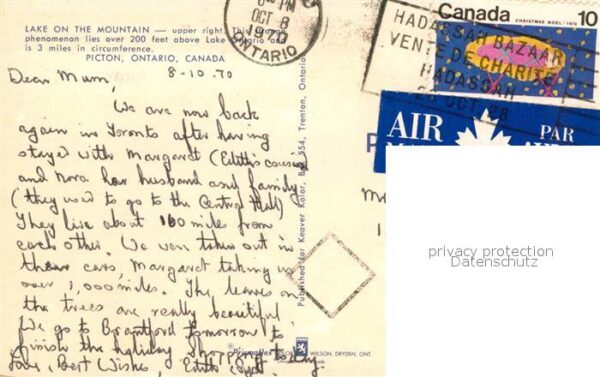 LAKE ON THE MOUNTAIN — upper right. This strange
phenomenon lies over 200 feet above Lake Ontario and
is 3 miles in circumference.
PICTON, ONTARIO, CANADA
8-10.70
Dear Mum,
We are now back
again in Toronto after having
stayed with Margaret (Edith's cousin)
and Nora her husband and family
(they used to go to the Central Hall)
They live about 100 miles from
each other. We were taken out in
their cars, Margaret taking us
over 1,000 miles. The leaves on
the trees are really beautiful
We go to Brantford tomorrow to
finish the holiday
Love, Best Wishes, Edith
Published for Keaver Kolor, Box 554, Trenton, Ontario
WILSON, DRYDEN, ONT
PM
OCT 8
1970
ONTARIO
HADASSAH BAZAAR
VENTE DE CHARITE
HADASSAH
28 OCT 28
Canada
CHRISTMAS NOËL 1970
10
AIR
PAR
privacy protection
Datenschutz